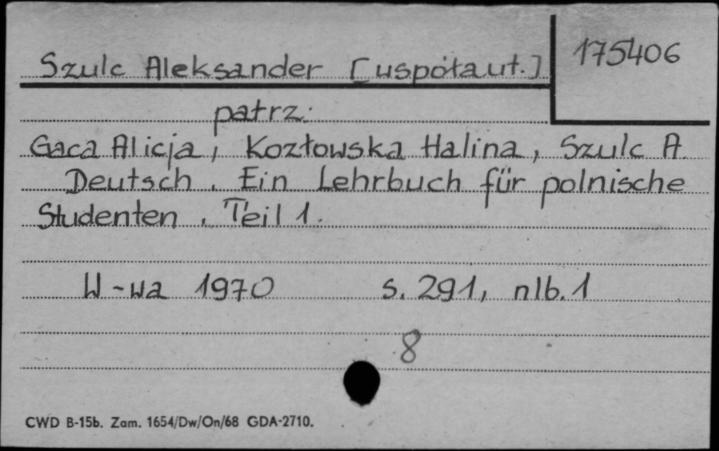 175406
Szulc Aleksander [współaut.]
patrz:
Gaca Alicja, Kozłowska Halina, Szulc A
Deutsch. Ein Lehrbuch für polnische
Studenten. Teil 1.
W-wa 1970 s. 291, nlb. 1
8
CWD B-15b. Zam. 1654/Dw/On/68 GDA-2710.